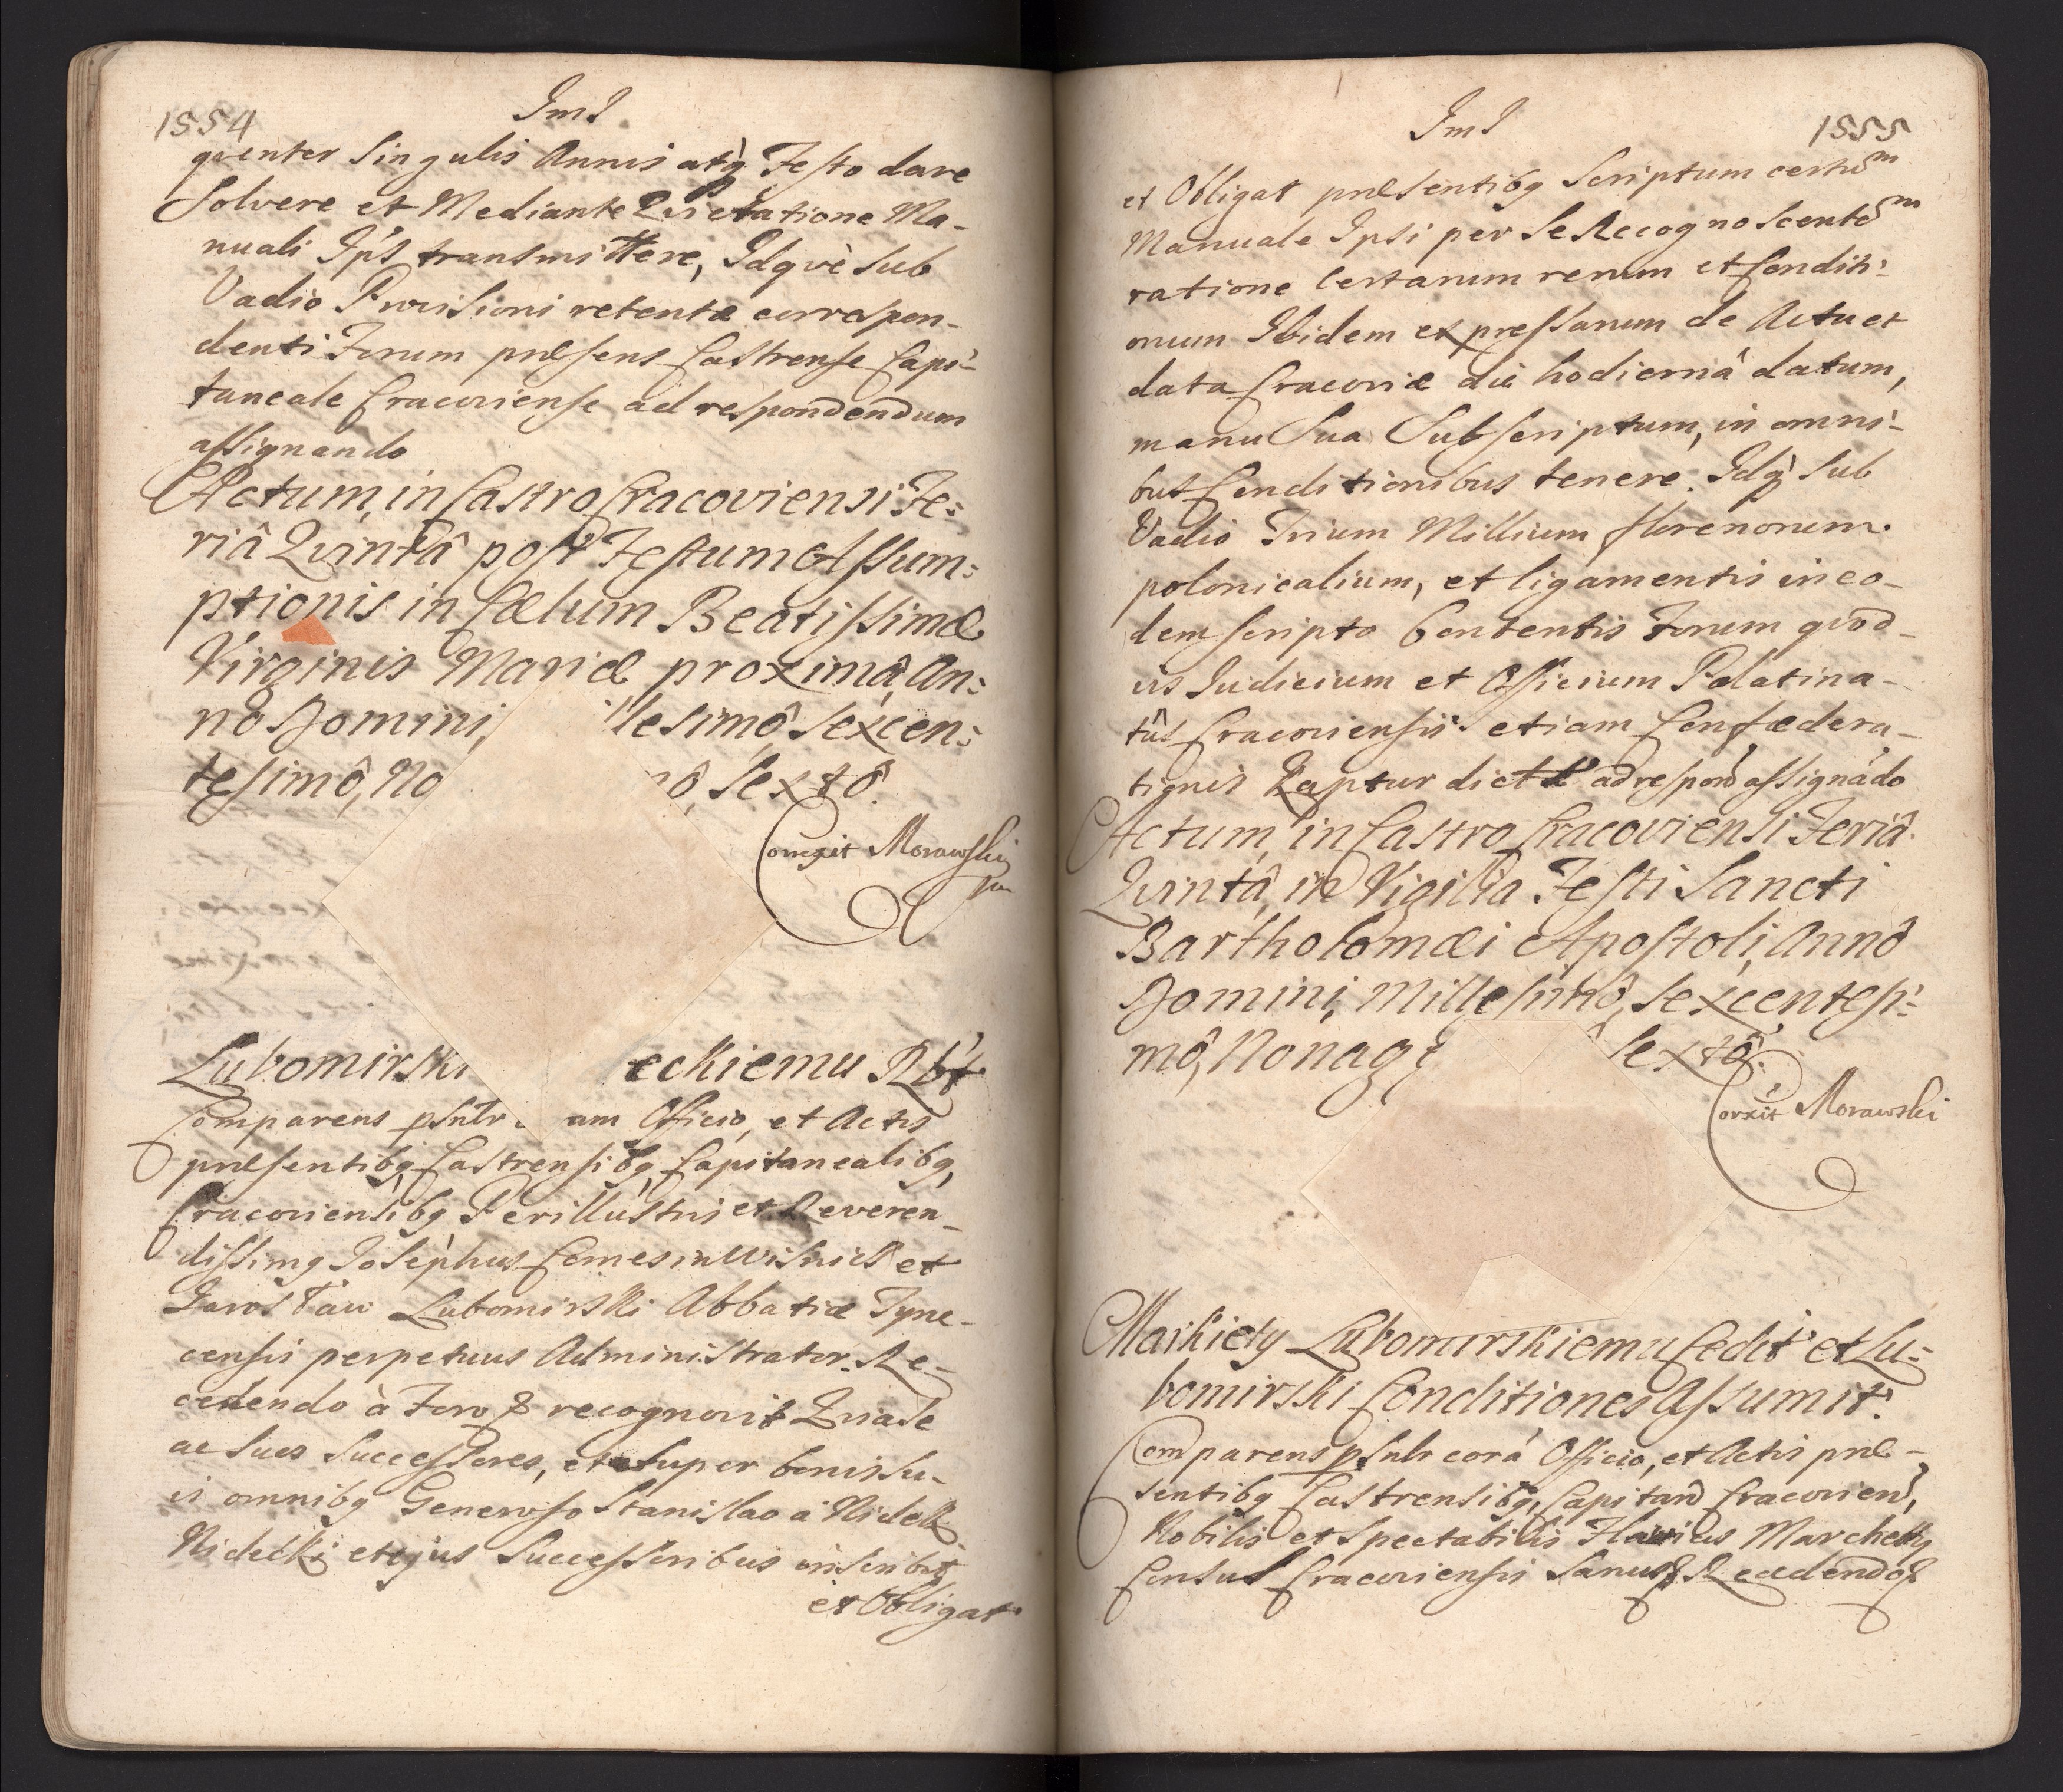 1554
JmJ
quenter Singulis Annis atq Festo dare
Solvere et Mediante Quietatione Ma-
nuali Ips transmittere, Idqvè Sub
Vadio Provisioni retentæ correspon-
denti Forum præsens Castrense Capi-
taneale Cracoviense ad respondendum
assignando
Actum, in Castro Cracoviensi Fe:
riâ Qvintâ post Festum Assum:
ptionis in Cælum Beatissimæ
Virginis Mariæ proximâ, An:
nô Domini, lesimô Sexcen:
tesimô, No nô, Sextô.
Correxit Morawski
Lubomirski eckiemu Rbt
Comparens psntr am Officio, et Actis
præsentibq, Castrensibq, Capitanealibq,
Cracoviensibq Perillustris et Reveren-
dissimq Josephus Comes in Wisnicz et
Jarosław Lubomirski Abbatiæ Tyne-
censis perpetuus Administrator. Re-
cedendo à Foro & recognovit Qvia Se
ac Suos Successores, et Super bonis Su-
is omnibq Generoso Stanislao à Nidek
Nidecki et ejus Successoribus inscribit
et Obligat
JmJ
1555
et Obligat præsentibq Scriptum certum
Manuale Ipsi per Se Recognoscentem
ratione Certarum rerum et Conditi-
onum Ibidem expressarum de Actu et
data Cracoviæ die hodiernâ datum,
manu Sua Subscriptum, in omni-
bus Conditionibus tenere. Idq Sub
Vadio Trium Millium florenorum
polonicalium, et ligamentis in eo-
dem scripto Contentis Forum qvod-
vis Judicium et Officium Palatina-
tûs Cracoviensis etiam Confædera-
tionis Kaptur dictæ ad respond assignādo
Actum, in Castro Cracoviensi Feriâ
Qvintâ, in Vigilia Festi Sancti
Bartholomæi Apostoli, Annô
Domini, Millesimô, Sexcentesi:
mô, Nonage Sextô.
Correxit Morawski
Markiety Lubomirskiemu Cedit et Lu:
bomirski Conditiones Assumit.
Comparens psntr corā Officio, et Actis præ-
sentibq Castrensibq, Capitan Cracovien,
Nobilis et Spectabilis Marchetty
Consul Cracoviensis Sanus & Recedendo &